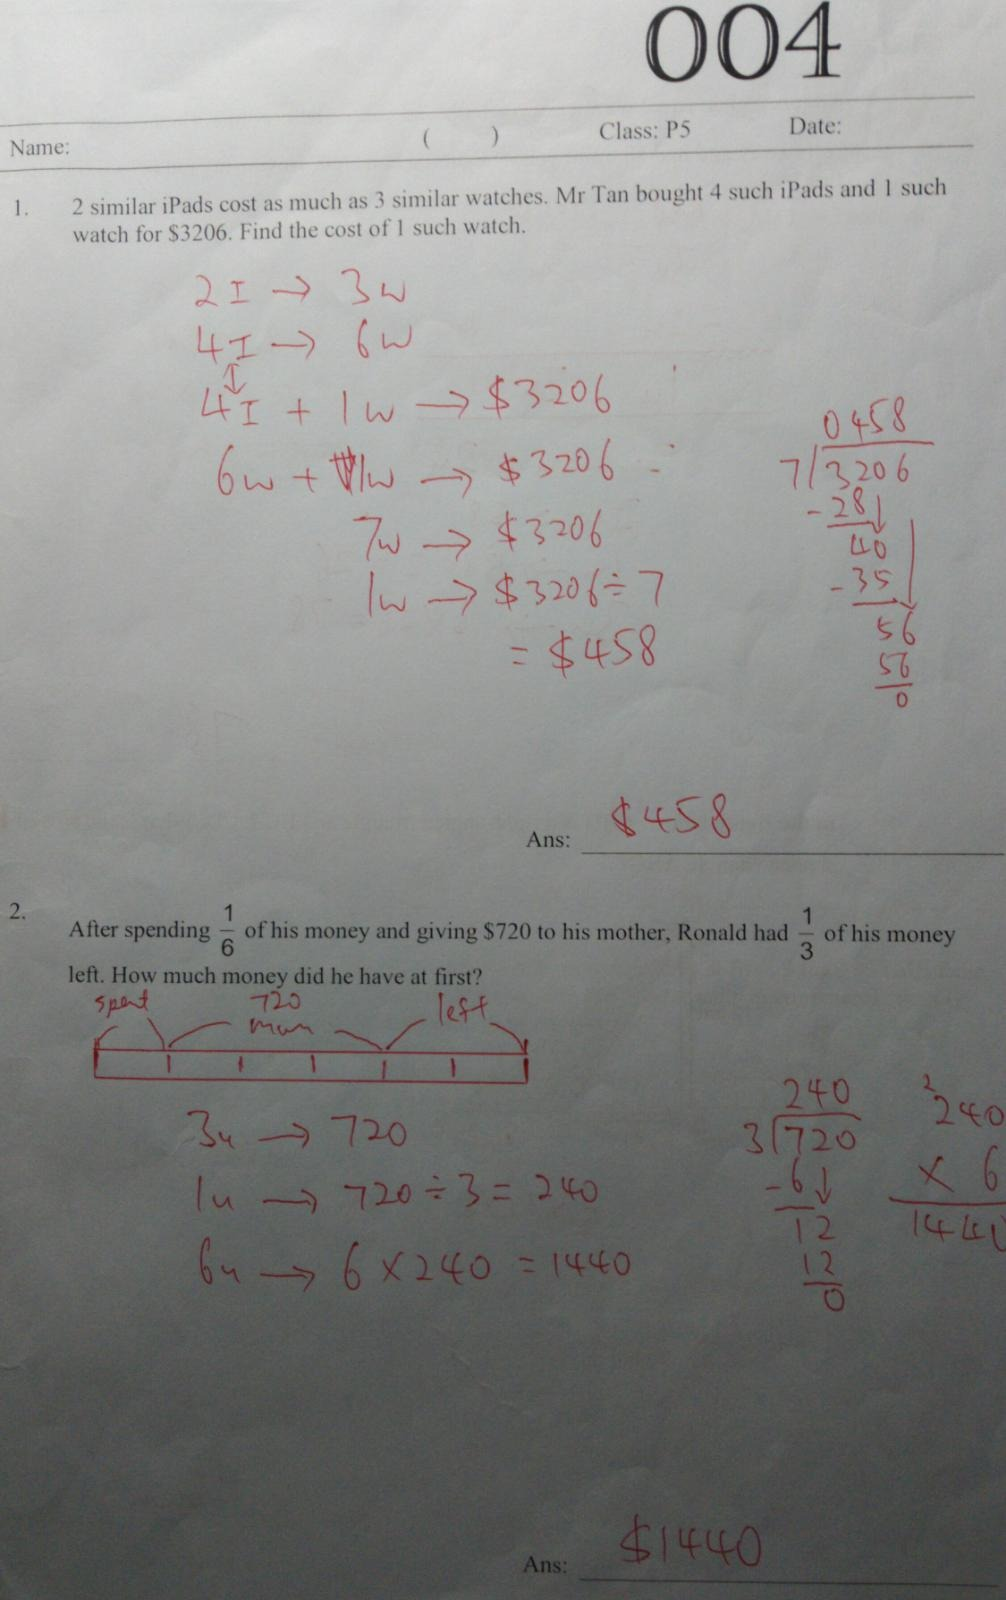 004
Name: ( ) Class: P5 Date:
1. 2 similar iPads cost as much as 3 similar watches. Mr Tan bought 4 such iPads and 1 such
watch for $3206. Find the cost of 1 such watch.
2I → 3w
4I → 6w
↕
4I + 1w → $3206
6w + 1w → $3206
7w → $3206
1w → $3206 ÷ 7
= $458
0458
7 3206
- 28
40
- 35
56
56
0
Ans: $458
2. After spending 1/6 of his money and giving $720 to his mother, Ronald had 1/3 of his money
left. How much money did he have at first?
spent 720 left
mum
3u → 720
1u → 720 ÷ 3 = 240
6u → 6 × 240 = 1440
240
3 720
- 6
12
12
0
2
240
× 6
1440
Ans: $1440